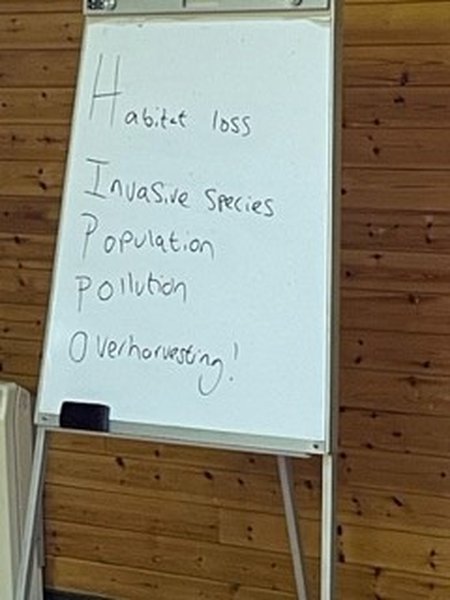 Habitat loss
Invasive species
Population
Pollution
Overharvesting!